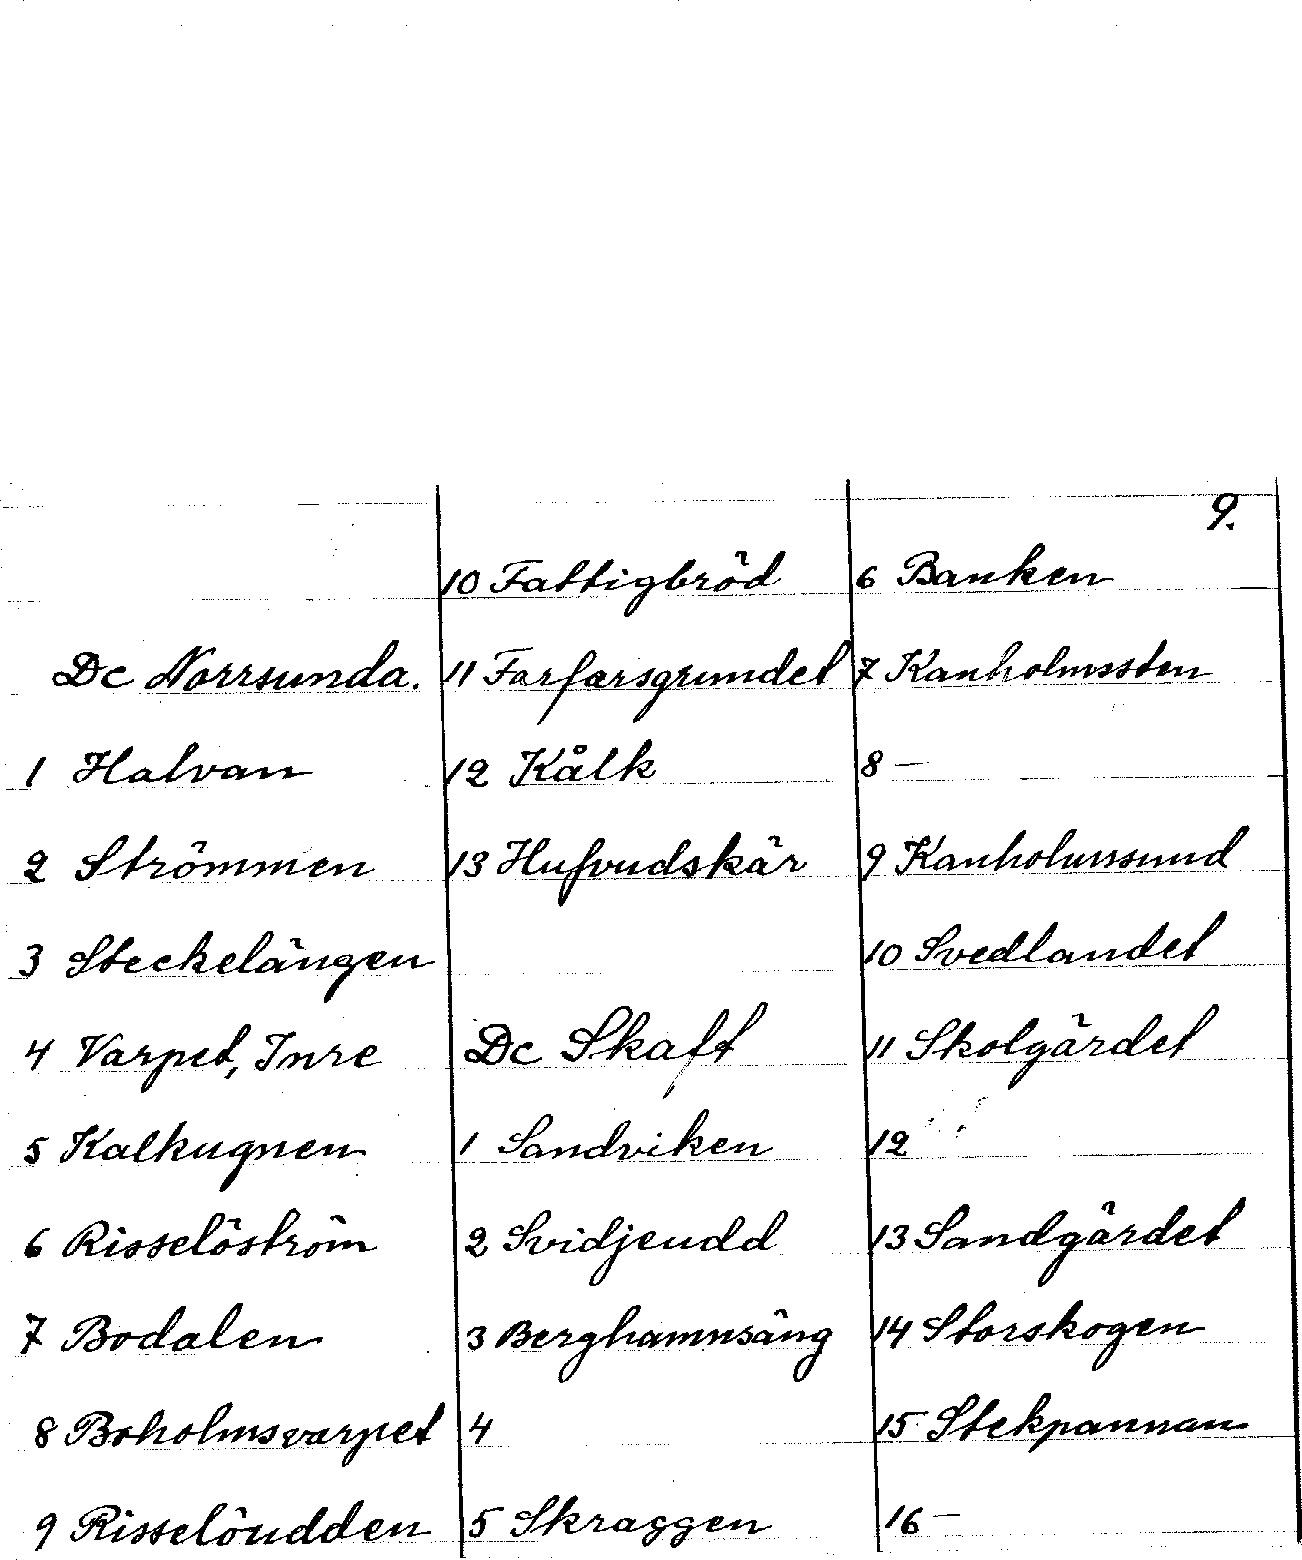 9.
De Norrsunda.
1 Halvan
2 Strömmen
3 Steckelängen
4 Varpet, Inre
5 Kalkugnen
6 Risselöström
7 Bodalen
8 Boholmsvarpet
9 Risselöudden
10 Fattigbröd
11 Farfarsgrundet
12 Kålk
13 Hufvudskär
De Skaft
1 Sandviken
2 Svidjeudd
3 Berghamnsäng
4
5 Skraggen
6 Banken
7 Kanholmssten
8 —
9 Kanholmssund
10 Svedlandet
11 Skolgärdet
12
13 Sandgärdet
14 Storskogen
15 Stekpannan
16 —